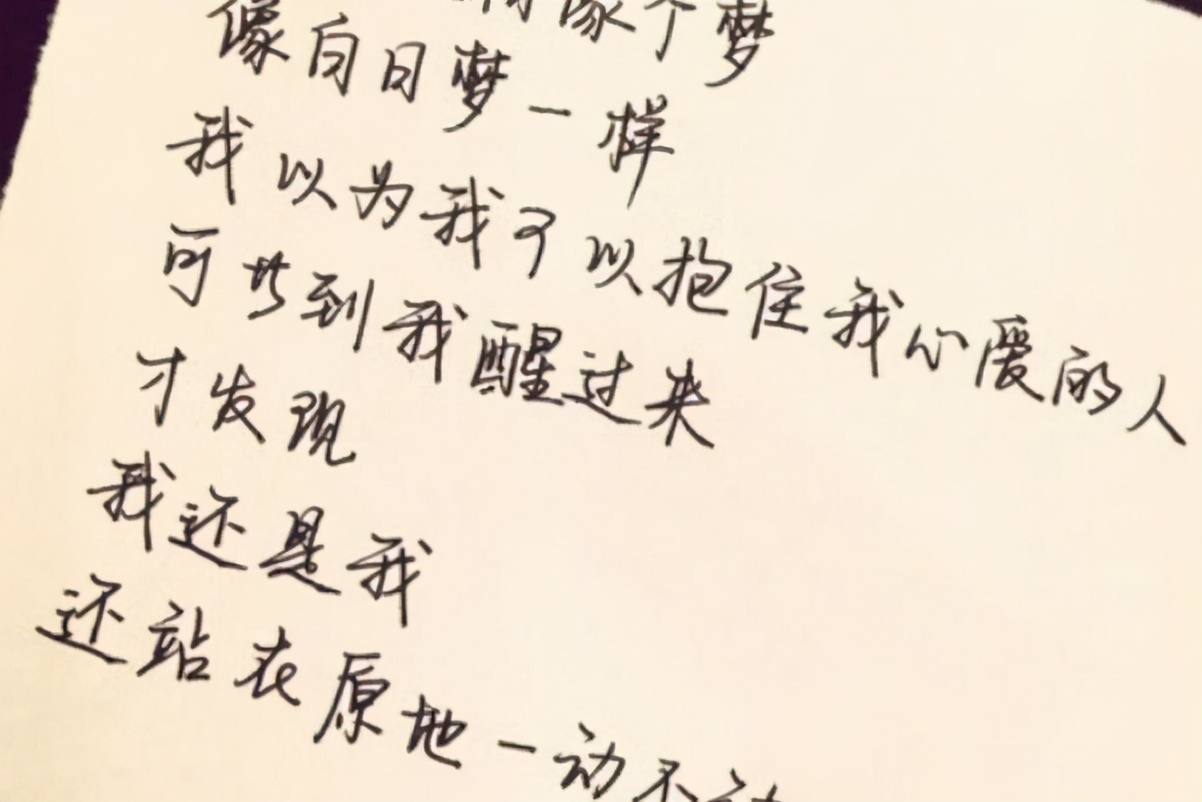 像个梦
像白日梦一样
我以为我可以抱住我心爱的人
可当到我醒过来
才发现
我还是我
还站在原地一动不动